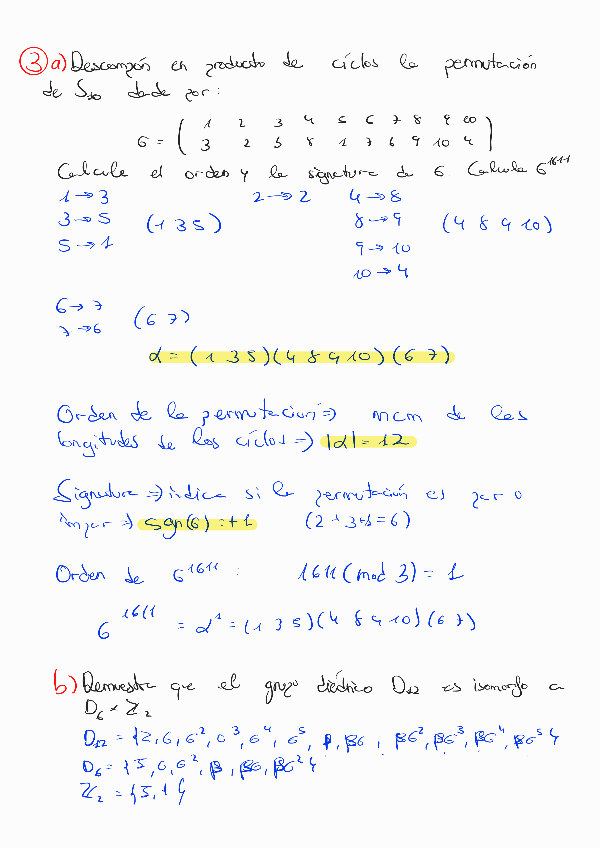 3 a) Descompón en producto de ciclos la permutación
de S₁₀ dada por:
1 2 3 4 5 6 7 8 9 10
σ = ( 3 2 5 8 1 7 6 9 10 4 )
Calcula el orden y la signatura de σ. Calcula σ^1611
1 → 3 2 → 2 4 → 8
3 → 5 (1 3 5) 8 → 9 (4 8 9 10)
5 → 1 9 → 10
10 → 4
6 → 7 (6 7)
7 → 6
α = (1 3 5)(4 8 9 10)(6 7)
Orden de la permutación ⇒ mcm de las
longitudes de los ciclos ⇒ |α| = 12
Signatura ⇒ indica si la permutación es par o
impar ⇒ sgn(σ) = +1 (2+3+1=6)
Orden de σ^1611 : 1611 (mod 3) = 1
σ^1611 = α¹ = (1 3 5)(4 8 9 10)(6 7)
b) Demuestra que el grupo diédrico D₁₂ es isomorfo a
D₆ × Z₂
D₁₂ = {2, σ, σ², σ³, σ⁴, σ⁵, β, βσ, βσ², βσ³, βσ⁴, βσ⁵}
D₆ = {5, σ, σ², β, βσ, βσ²}
Z₂ = {5, 1}